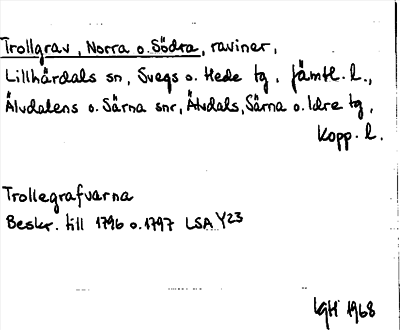 Trollgrav, Norra o. Södra, raviner,
Lillhärdals sn, Svegs o. Hede tg, Jämtl. l.,
Älvdalens o. Särna snr, Älvdals, Särna o. Idre tg,
Kopp. l.
Trollegrafvarna
Beskr. till 1796 o. 1797 LSA Y23
LgH 1968